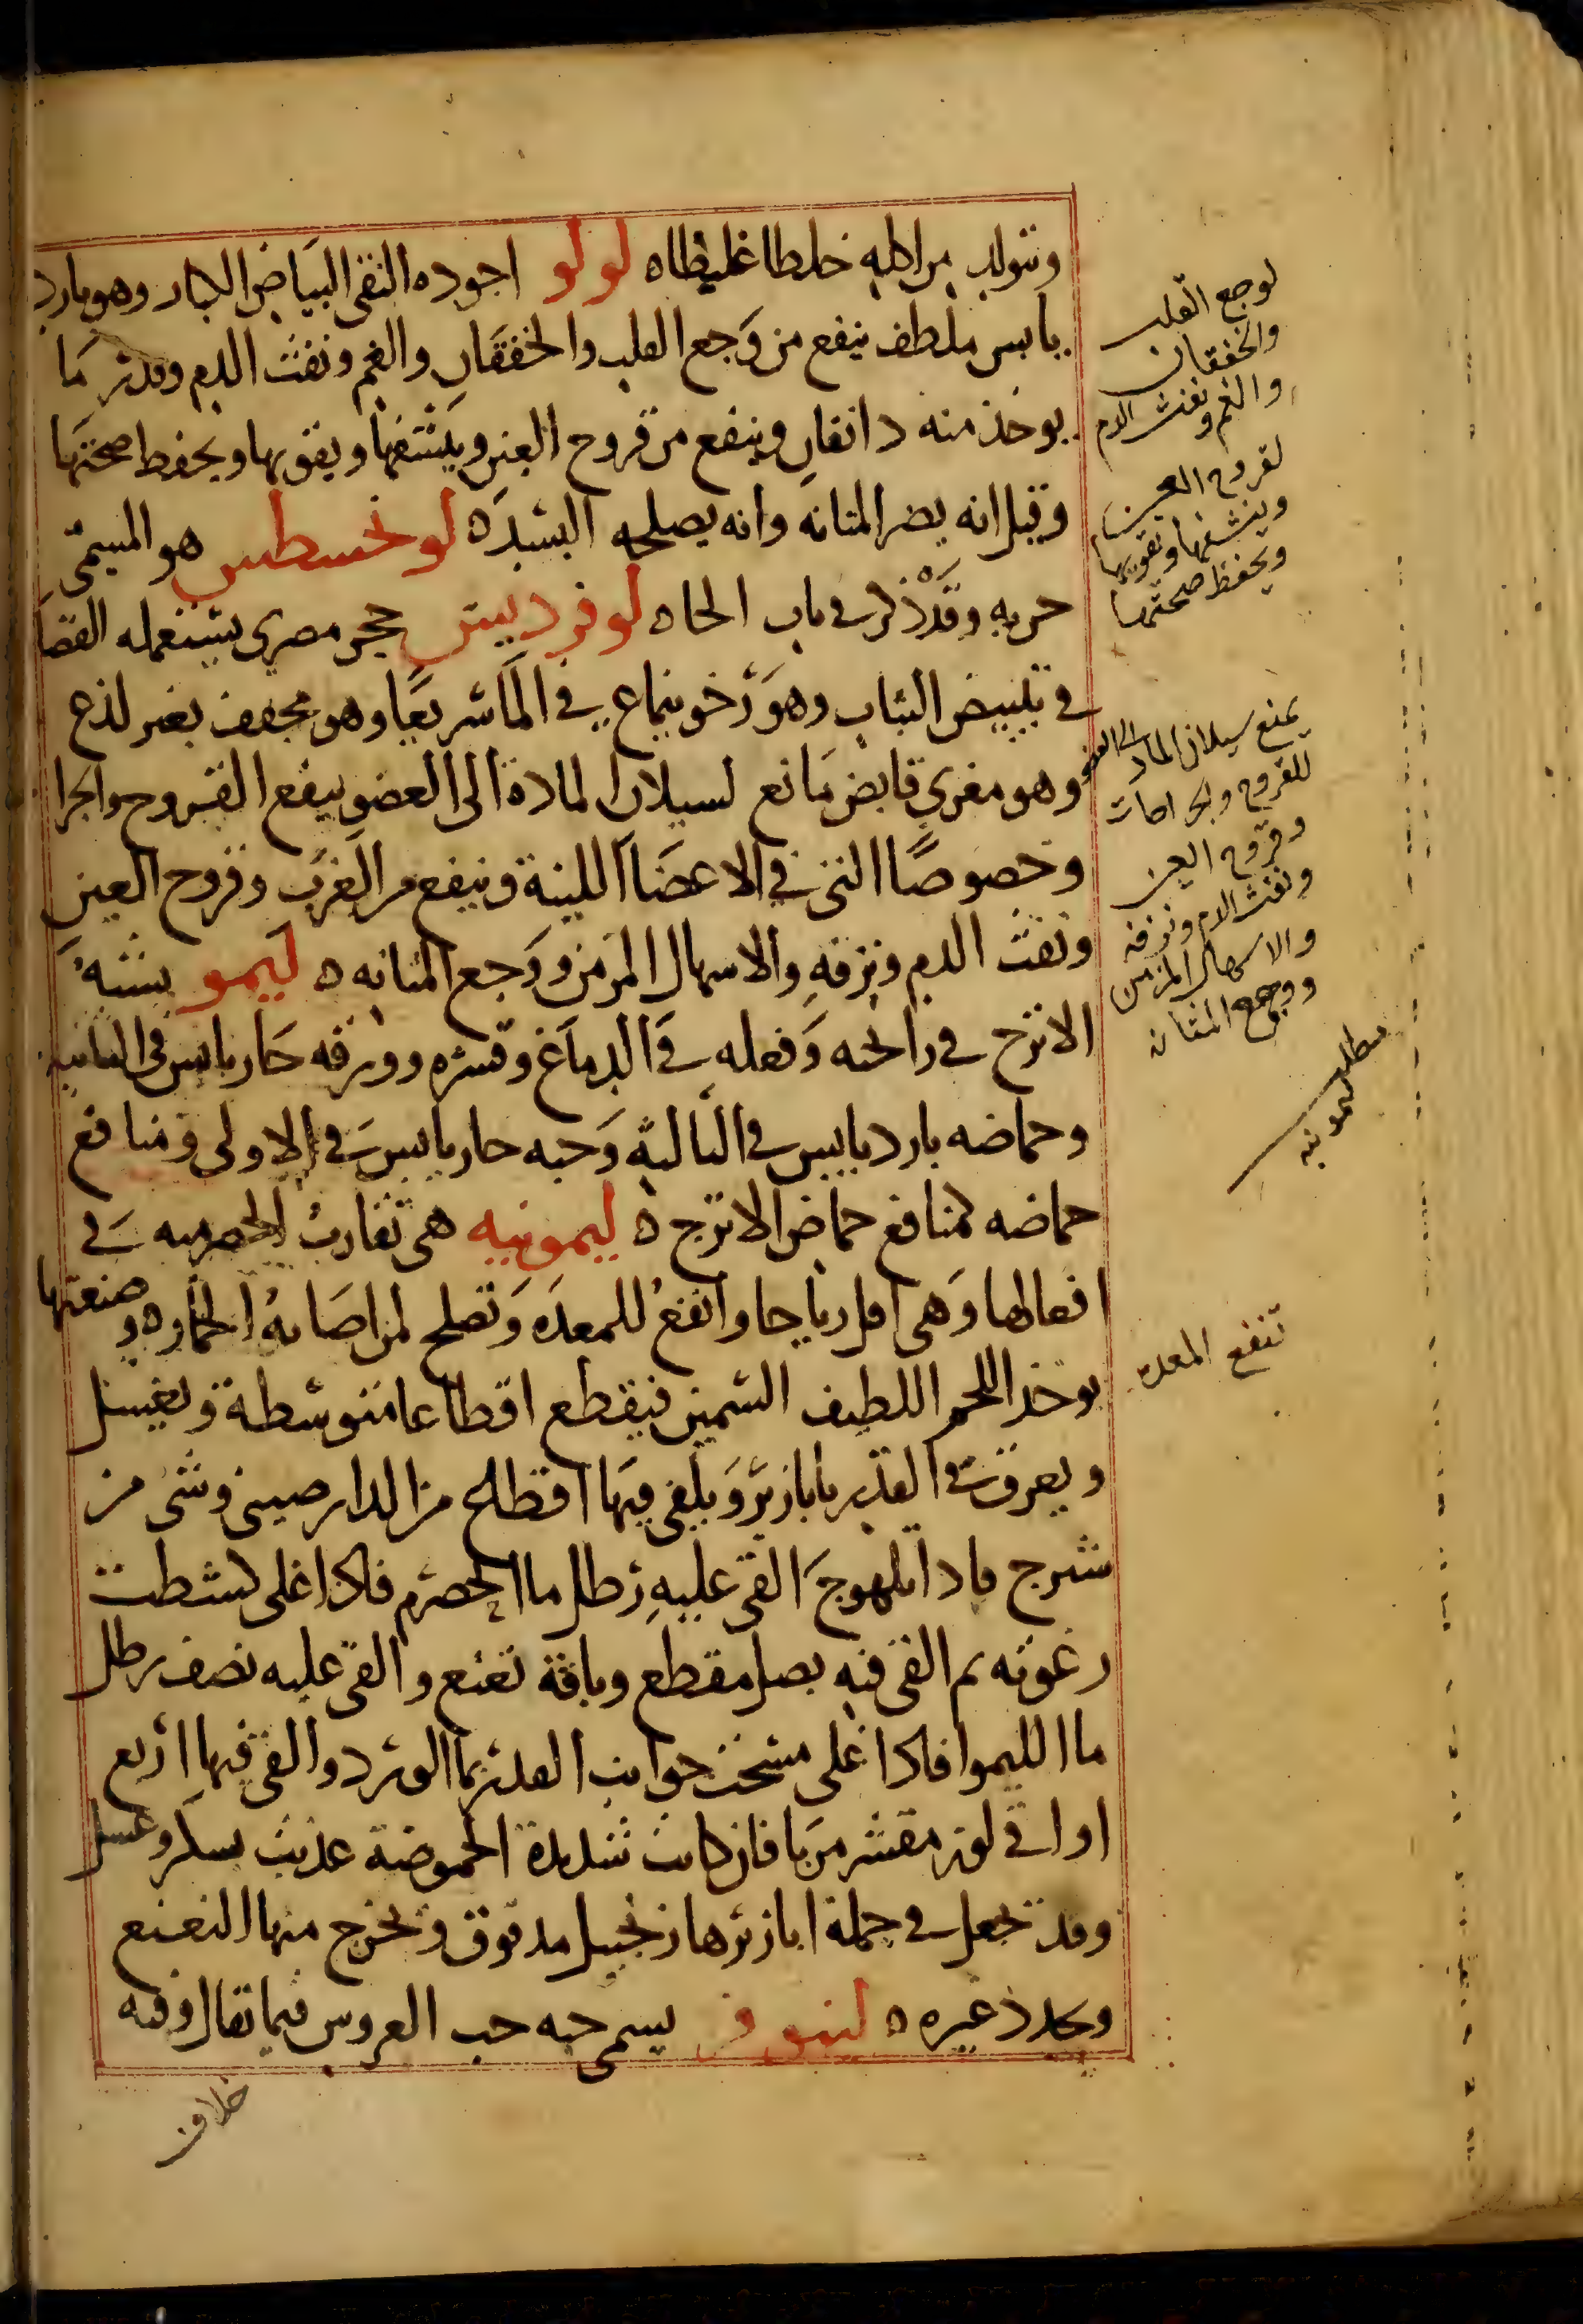 وتتولد من اكله خلطا غليظا ه لولو اجوده النقى البياض الكبار وهو بارد
يابس ملطف ينفع من وجع القلب والخفقان والغم ونفث الدم وقدر ما
يوخذ منه دانقان وينفع من قروح العين وينشفها ويقويها ويحفظ صحتها
وقيل انه يضر المثانه وانه يصلحه البسد ه لوخسطس هو المسمى
حربه وقد ذكر فى باب الحا ه لوفرديس حجر مصرى يستعمله القصا
فى تبييض الثياب وهو رخو ينماع فى الما سريعا وهو مجفف بغير لذع
وهو مغرى قابض مانع لسيلان المادة الى العضو ينفع القروح والجرا
وخصوصا التى فى الاعضا اللينة وينفع من الغرب وقروح العين
ونفث الدم ونزفه والاسهال المزمن ووجع المثانه ه ليمو يشبه
الاترج فى رائحته وفعله فى الدماغ وقشره وورقه حار يابس فى الثانيه
وحماضه بارد يابس فى الثالثه وحبه حار يابس فى الاولى ومنافع
حماضه كمنافع حماض الاترج ه ليمونيه هى تقارب الحصرميه فى
افعالها وهى اقل رياحا وانفع للمعده وتصلح لمن اصابه الخمار ه وصنعتها
يوخذ اللحم اللطيف السمين فيقطع اقطاعا متوسطة ويغسل
ويعرق فى القدر بابازير ويلقى فيها اقطاع من الدارصينى وشى من
شيرج فاذا تلهوج القى عليه رطل ما الحصرم فاذا غلى كشطت
رغوته ثم القى فيه بصل مقطع وباقة نعنع والقى عليه نصف رطل
ما الليموا فاذا غلى مسحت جوانب القدر بما الورد والقى فيها اربع
اواقى لوز مقشر مربا فان كانت شديدة الحموضة عذبت بسكر وعسل
وقد تجعل فى جملة ابازيرها زنجبيل مدقوق وتخرج منها النعنع
وتجدد غيره ه لينوفر يسمى حبه حب العروس فيما يقال وفيه
خلاف
لوجع القلب
والخفقان
والغم ونفث الدم
لقروح العين
وينشفها وتقويها
ويحفظ صحتها
يمنع سيلان الماده الى العضو
للقروح والجراحات
وقروح العين
ونفث الدم ونزفه
والاسهال المزمن
ووجع المثانه
مطلب ليمونيه
تنفع المعده